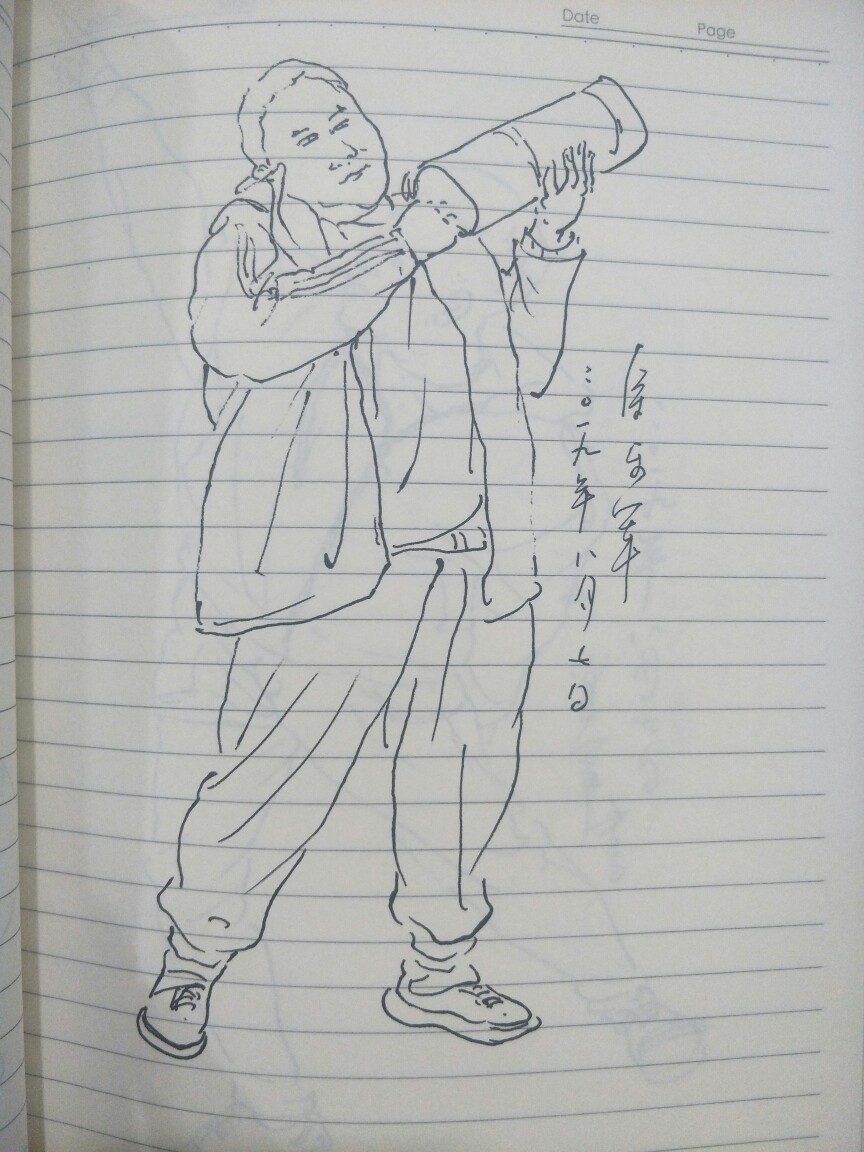 Date
Page
军
二〇一九年八月七日